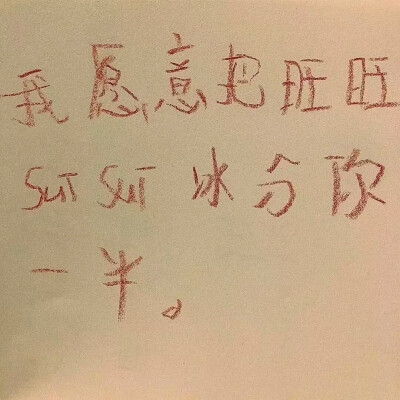 我愿意把旺旺
SUTSUT冰分你
一半。